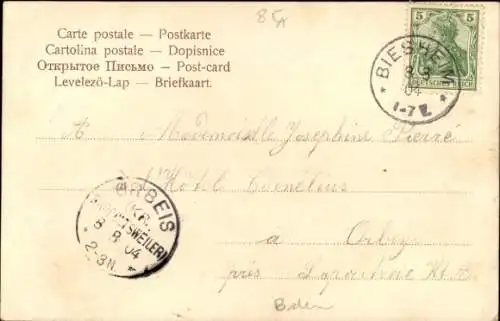 85A
Carte postale — Postkarte
Cartolina postale — Dopisnice
Открытое Письмо — Post-card
Levelező-Lap — Briefkaart.
5 5
DEUTSCHES REICH
* BIESHEIM *
8 8
04
1-7
A Mademoiselle Josephine Pierré
Hôtel Cornélius
à Orbey
près Lapoutroie
URBEIS
(KR.
RAPPOLTSWEILER)
8 8 04
2-3N.
*
Baden